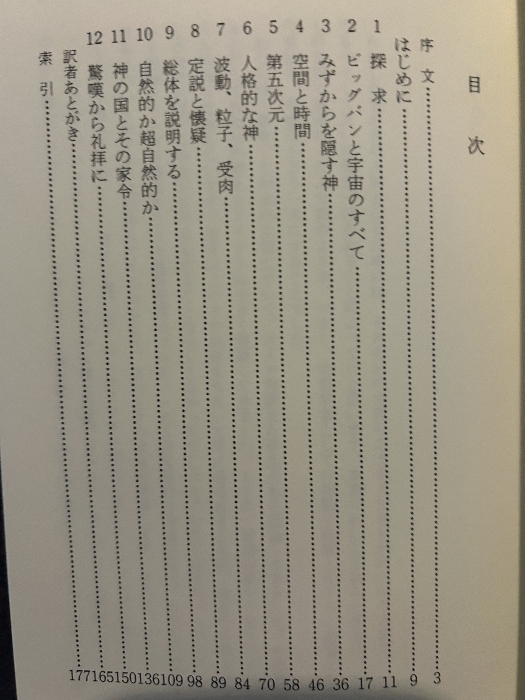 目次
序文 3
はじめに 9
1 探求 11
2 ビッグバンと宇宙のすべて 17
3 みずからを隠す神 36
4 空間と時間 46
5 第五次元 58
6 人格的な神 70
7 波動、粒子、受肉 84
8 定説と懐疑 89
9 総体を説明する 98
10 自然的か超自然的か 109
11 神の国とその家令 136
12 驚嘆から礼拝に 150
訳者あとがき 165
索引 177